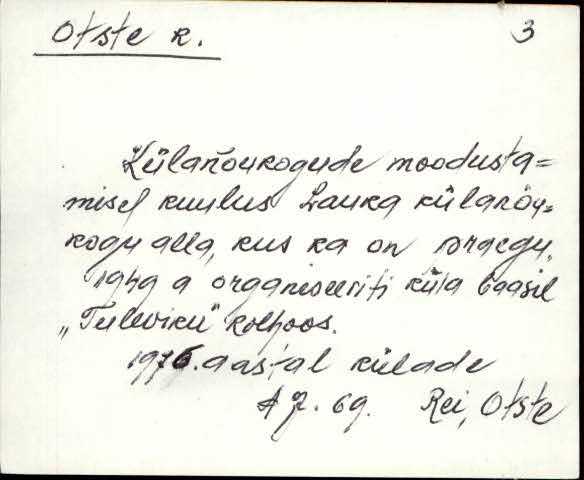 Otste k.
3
Külanõukogude moodusta=
misel kuulus Lauka külanõu=
kogu alla, kus ka on praegu.
1949 a organiseeriti küla baasil
„Tuleviku" kolhoos.
1976. aastal külade
A 7. 69. Rei, Otste